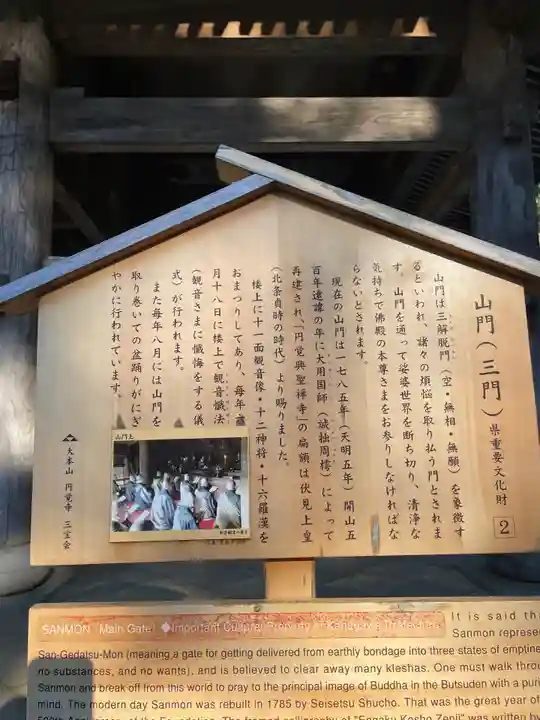 山門（三門）県重要文化財 2
山門は三解脱門（空・無相・無願）を象徴す
るといわれ、諸々の煩悩を取り払う門とされま
す。山門を通って娑婆世界を断ち切り、清浄な
気持ちで佛殿の本尊さまをお参りしなければな
らないとされます。
現在の山門は一七八五年（天明五年）開山五
百年遠諱の年に大用国師（誠拙周樗）によって
再建され、「円覚興聖禅寺」の扁額は伏見上皇
（北条貞時の時代）より賜りました。
楼上に十一面観音像・十二神将・十六羅漢を
おまつりしてあり、毎年
月十八日に楼上で観音懺法
（観音さまに懺悔をする儀
式）が行われます。
また毎年八月には山門を
取り巻いての盆踊りがにぎ
やかに行われています。
山門上
大本山 円覚寺 三宝会
SANMON (Main Gate) ◆Important Cultural Property of Kanagawa Prefecture
It is said th
Sanmon represe
San-Gedatsu-Mon (meaning a gate for getting delivered from earthly bondage into three states of emptine
no substances, and no wants), and is believed to clear away many kleshas. One must walk throu
Sanmon and break off from this world to pray to the principal image of Buddha in the Butsuden with a puri
mind. The modern day Sanmon was rebuilt in 1785 by Seisetsu Shucho. That was the great year of
500th Anniversary of the Foundation. The framed calligraphy of "Engaku Kosho Zenji" was written b